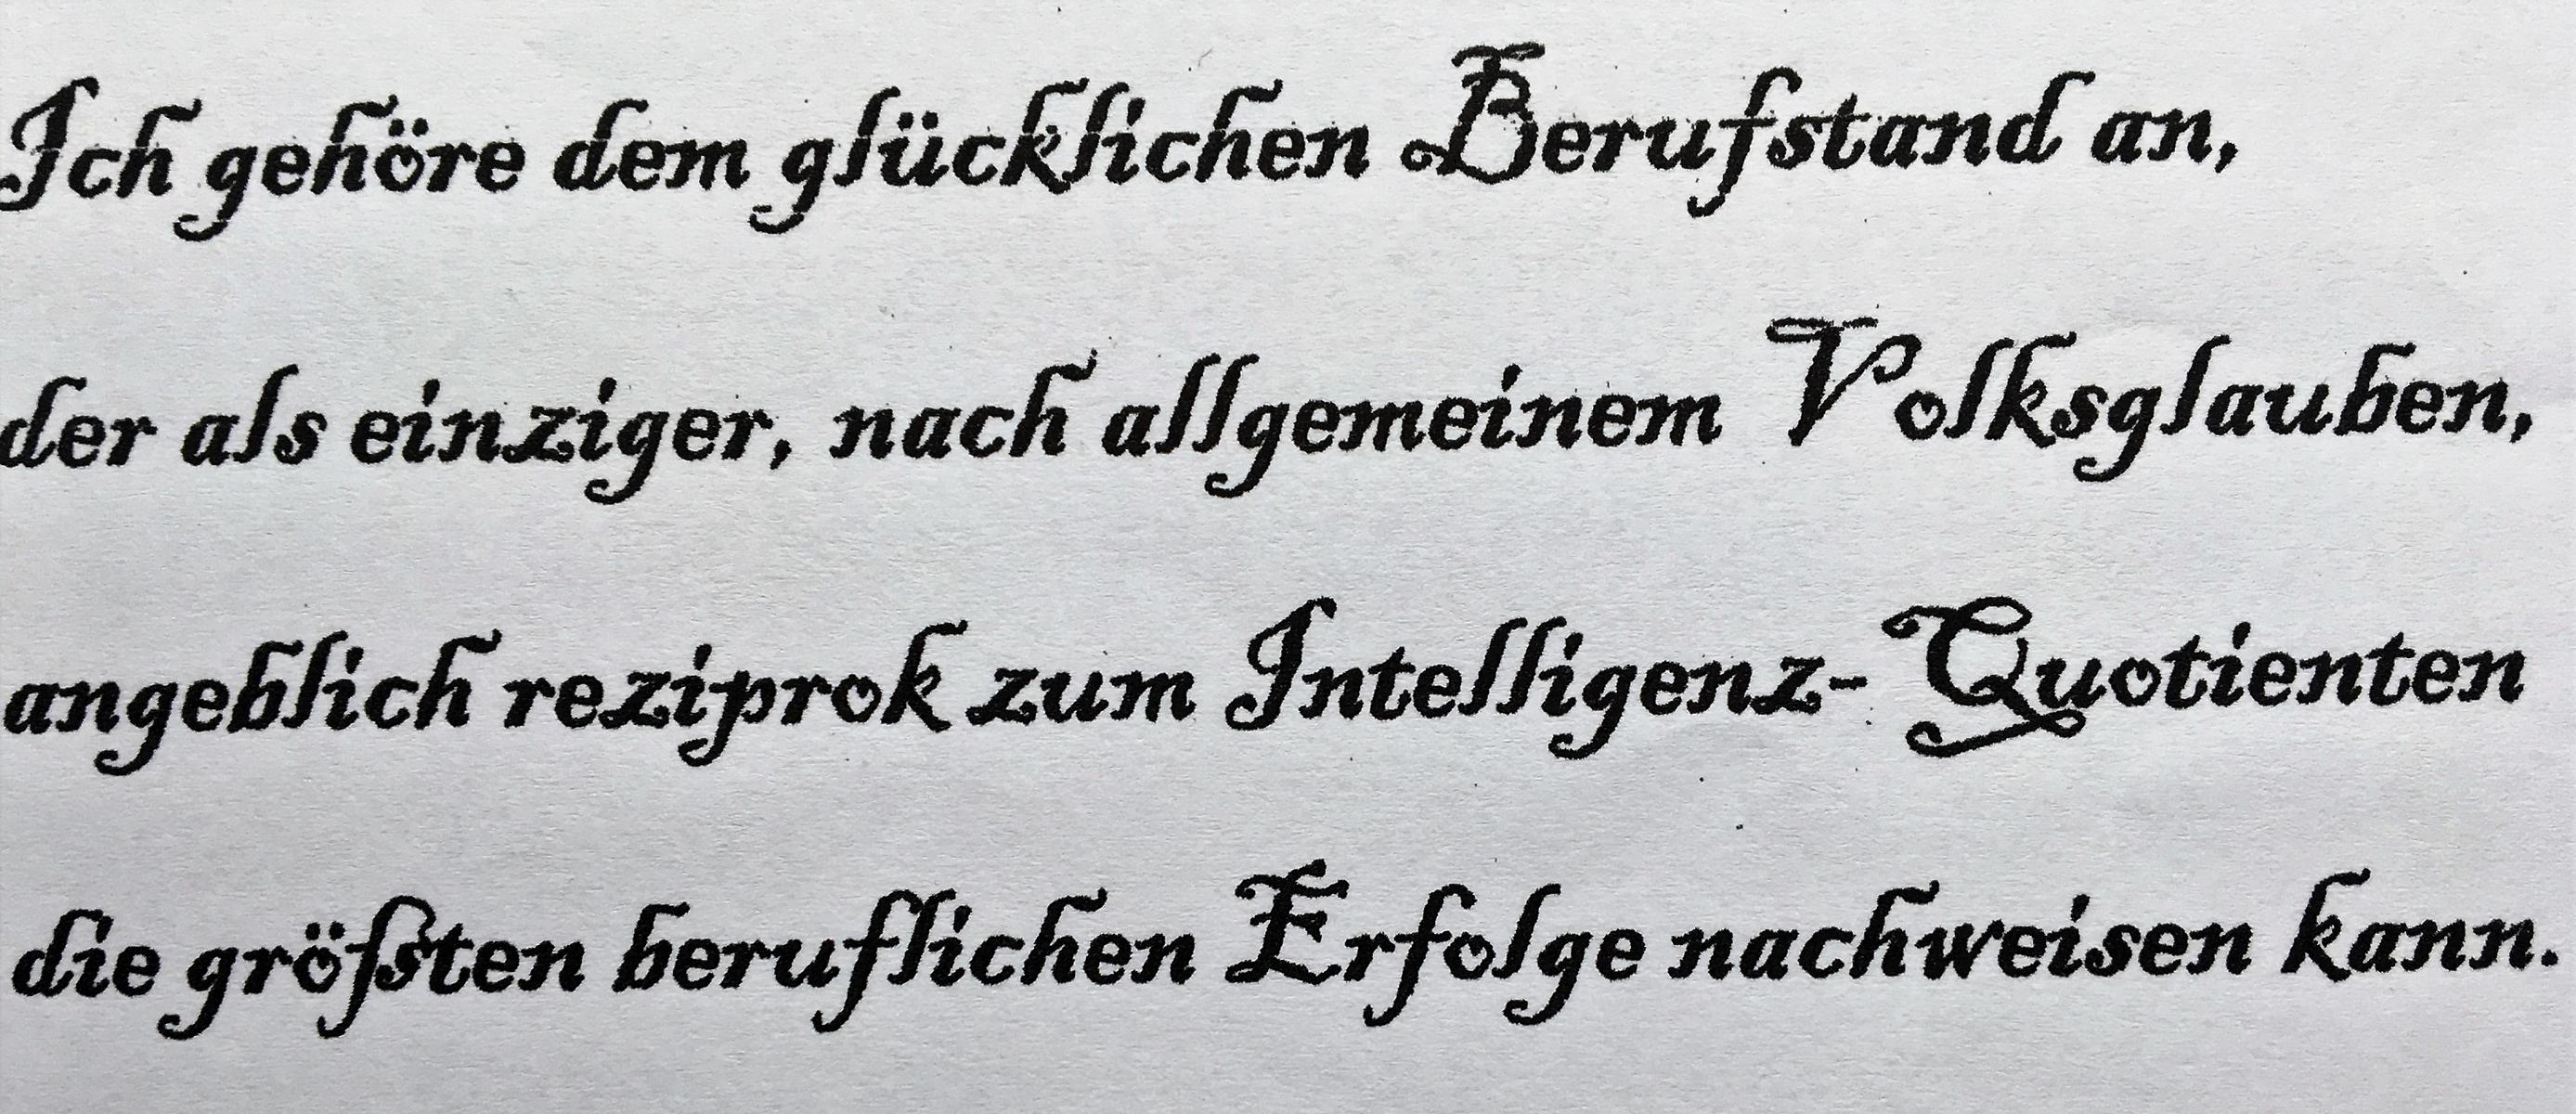 Ich gehöre dem glücklichen Berufstand an,
der als einziger, nach allgemeinem Volksglauben,
angeblich reziprok zum Intelligenz-Quotienten
die größten beruflichen Erfolge nachweisen kann.